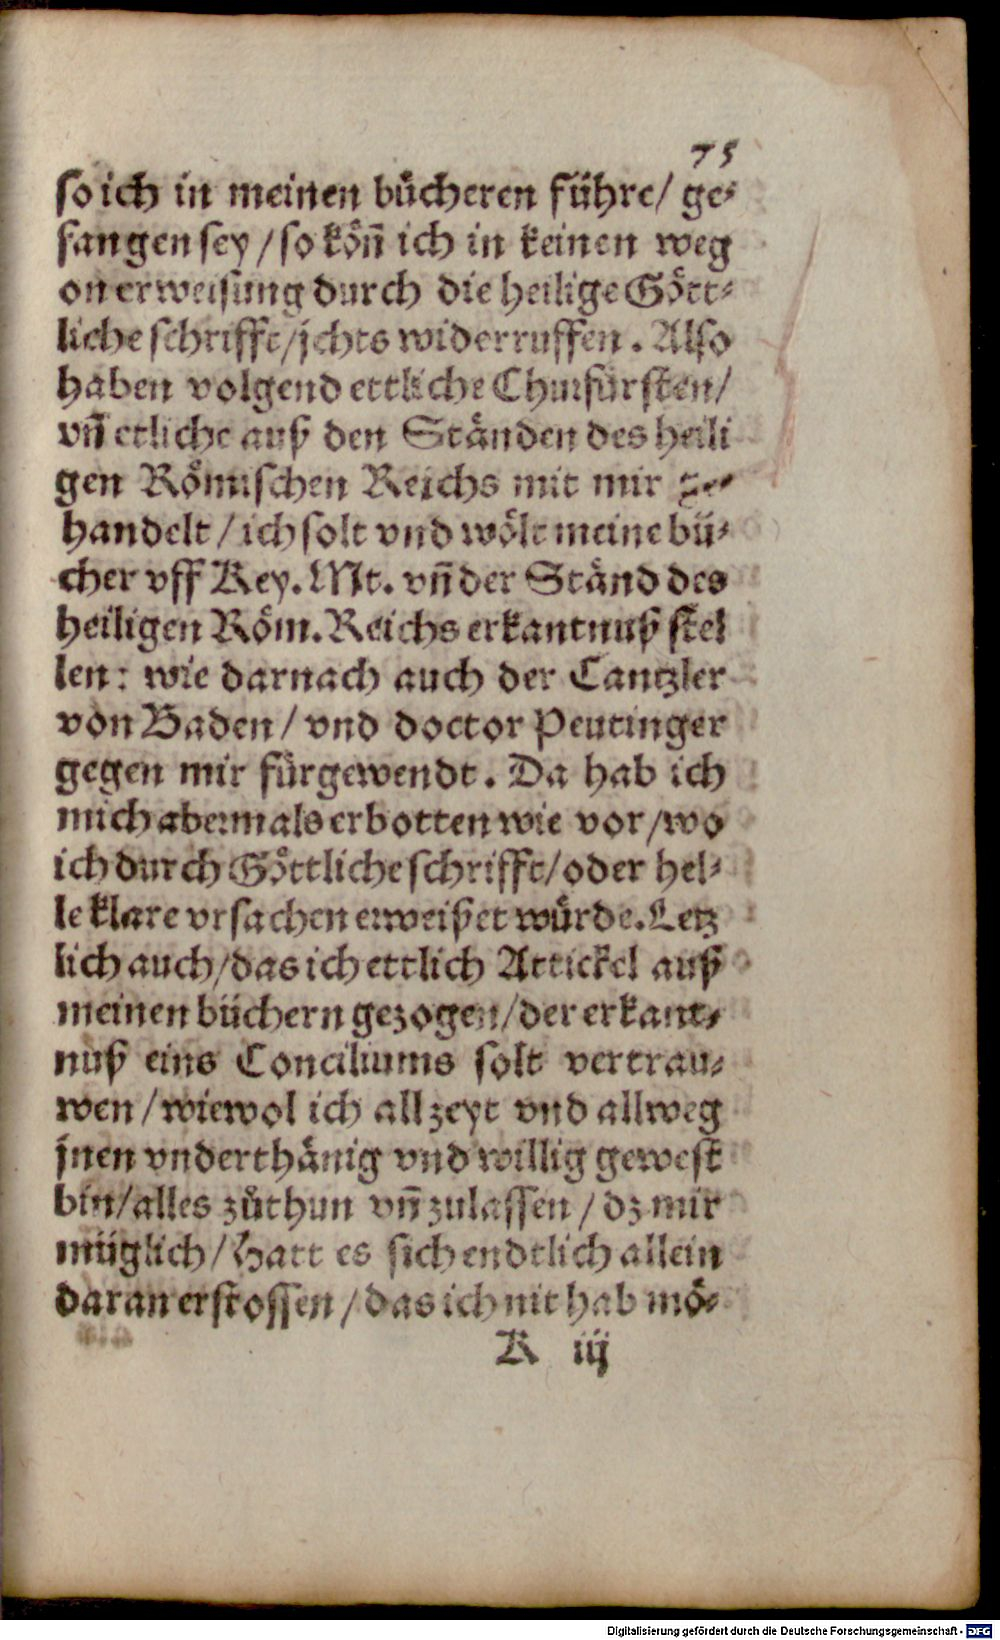 75
so ich in meinen bücheren führe/ ge-
fangen sey/ so köñ ich in keinen weg
on erweisung durch die heilige Gött-
liche schrifft/ jchts widerruffen. Also
haben volgend ettliche Churfürsten/
vñ etliche auß den Ständen des heili
gen Römischen Reichs mit mir ge-
handelt/ ich solt vnd wölt meine bü-
cher vff Key. Mt. vñ der Ständ des
heiligen Röm. Reichs erkantnuß stel
len: wie darnach auch der Cantzler
von Baden/ vnd doctor Peutinger
gegen mir fürgewendt. Da hab ich
mich abermals erbotten wie vor/ wo
ich durch Göttliche schrifft/ oder hel-
le klare vrsachen erweißet würde. Letz
lich auch/ das ich ettlich Artickel auß
meinen büchern gezogen/ der erkant-
nuß eins Conciliums solt vertrau-
wen/ wiewol ich allzeyt vnd allweg
jnen vnderthänig vnd willig gewest
bin/ alles zůthun vñ zulassen/ dz mir
müglich/ Hatt es sich endtlich allein
daran erstossen/ das ich nit hab mö-
K iij
Digitalisierung gefördert durch die Deutsche Forschungsgemeinschaft - DFG